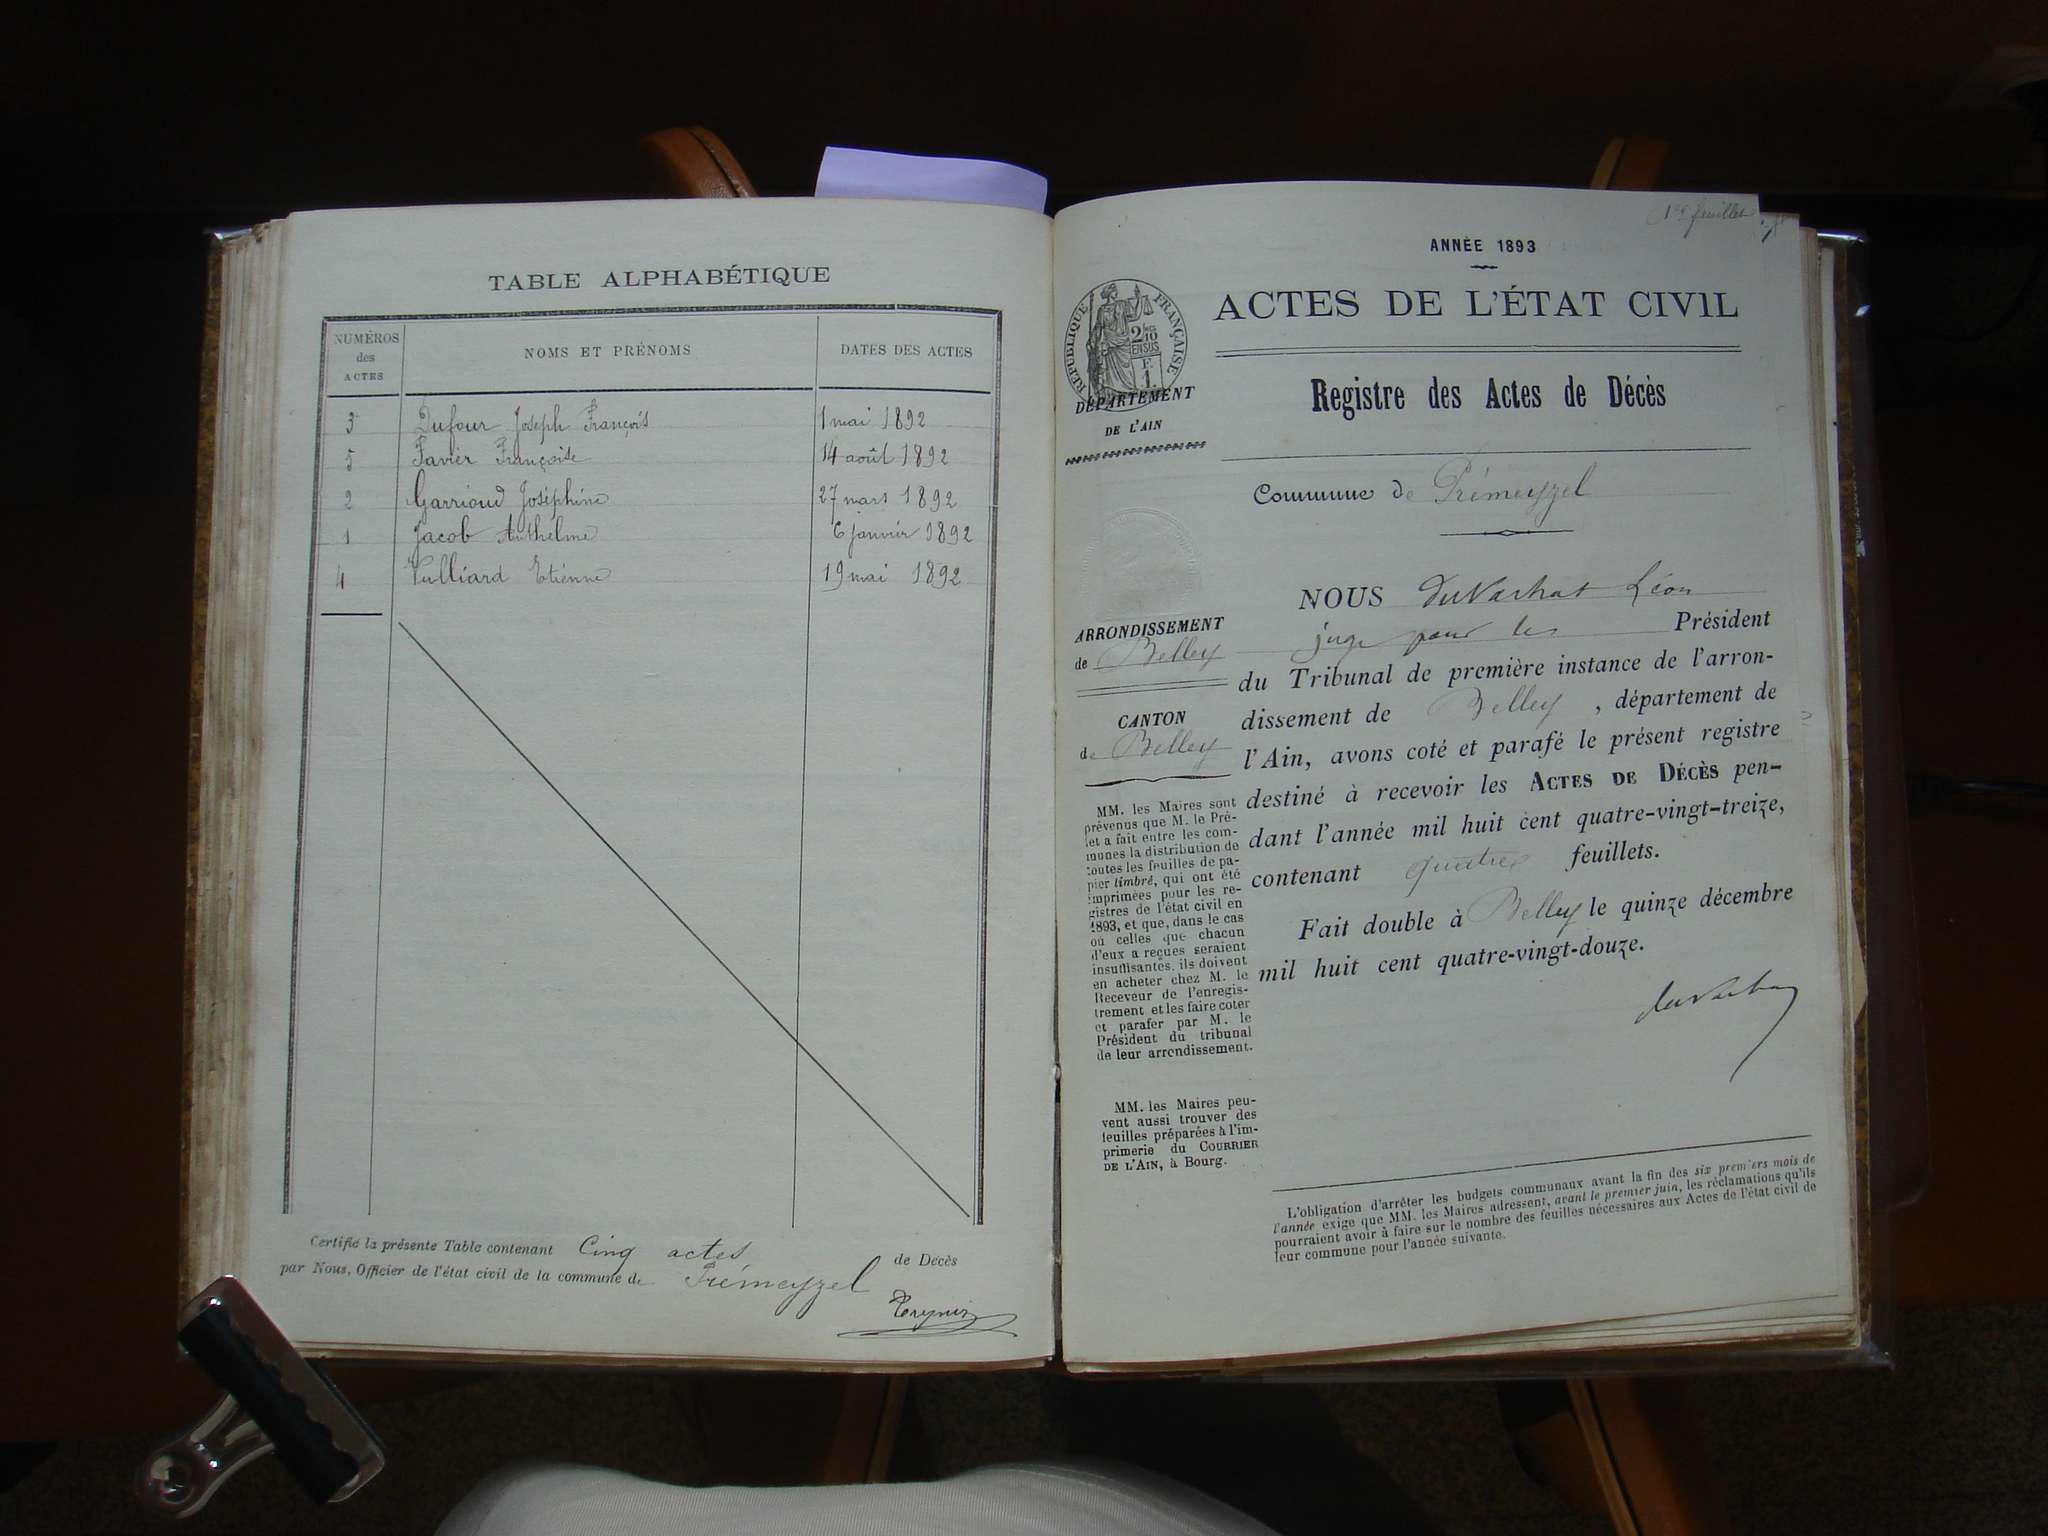 TABLE ALPHABÉTIQUE
NUMÉROS des ACTES
NOMS ET PRÉNOMS
DATES DES ACTES
3 Dufour Joseph François 1 mai 1892
5 Favier Françoise 14 août 1892
2 Garrioud Joséphine 27 mars 1892
1 Jacob Anthelme 6 janvier 1892
4 Vulliard Etienne 19 mai 1892
Certifié la présente Table contenant Cinq actes de Décès
par Nous, Officier de l'état civil de la commune de Prémeyzel
1er feuillet
ANNÉE 1893
ACTES DE L'ÉTAT CIVIL
RÉPUBLIQUE FRANÇAISE
2/10 EN SUS
1
DÉPARTEMENT
DE L'AIN
Registre des Actes de Décès
Commune de Prémeyzel
ARRONDISSEMENT
de Belley
CANTON
de Belley
MM. les Maires sont
prévenus que M. le Pré-
fet a fait entre les com-
munes la distribution de
toutes les feuilles de pa-
pier timbré, qui ont été
imprimées pour les re-
gistres de l'état civil en
1893, et que, dans le cas
où celles que chacun
d'eux a reçues seraient
insuffisantes, ils doivent
en acheter chez M. le
Receveur de l'enregis-
trement et les faire coter
et parafer par M. le
Président du tribunal
de leur arrondissement.
MM. les Maires peu-
vent aussi trouver des
feuilles préparées à l'im-
primerie du COURRIER
DE L'AIN, à Bourg.
NOUS Léon
juge pour le Président
du Tribunal de première instance de l'arron-
dissement de Belley, département de
l'Ain, avons coté et parafé le présent registre
destiné à recevoir les ACTES DE DÉCÈS pen-
dant l'année mil huit cent quatre-vingt-treize,
contenant quatre feuillets.
Fait double à Belley le quinze décembre
mil huit cent quatre-vingt-douze.
L'obligation d'arrêter les budgets communaux avant la fin des six premiers mois de
l'année exige que MM. les Maires adressent, avant le premier juin, les réclamations qu'ils
pourraient avoir à faire sur le nombre des feuilles nécessaires aux Actes de l'état civil de
leur commune pour l'année suivante.